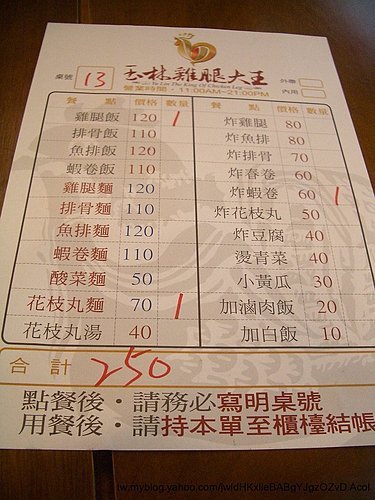 玉林雞腿大王
Yu Lin The King Of Chicken Leg
營業時間・11:00AM~21:00PM
桌號 13
外帶
內用
餐 點 價格 數量 餐 點 價格 數量
雞腿飯 120 1 炸雞腿 80
排骨飯 110 炸魚排 80
魚排飯 120 炸排骨 70
蝦卷飯 110 炸春卷 60
雞腿麵 120 炸蝦卷 60 1
排骨麵 110 炸花枝丸 50
魚排麵 120 炸豆腐 40
蝦卷麵 110 燙青菜 40
酸菜麵 50 小黃瓜 30
花枝丸麵 70 1 加滷肉飯 20
花枝丸湯 40 加白飯 10
合 計 250
點餐後・請務必寫明桌號
用餐後・請持本單至櫃檯結帳